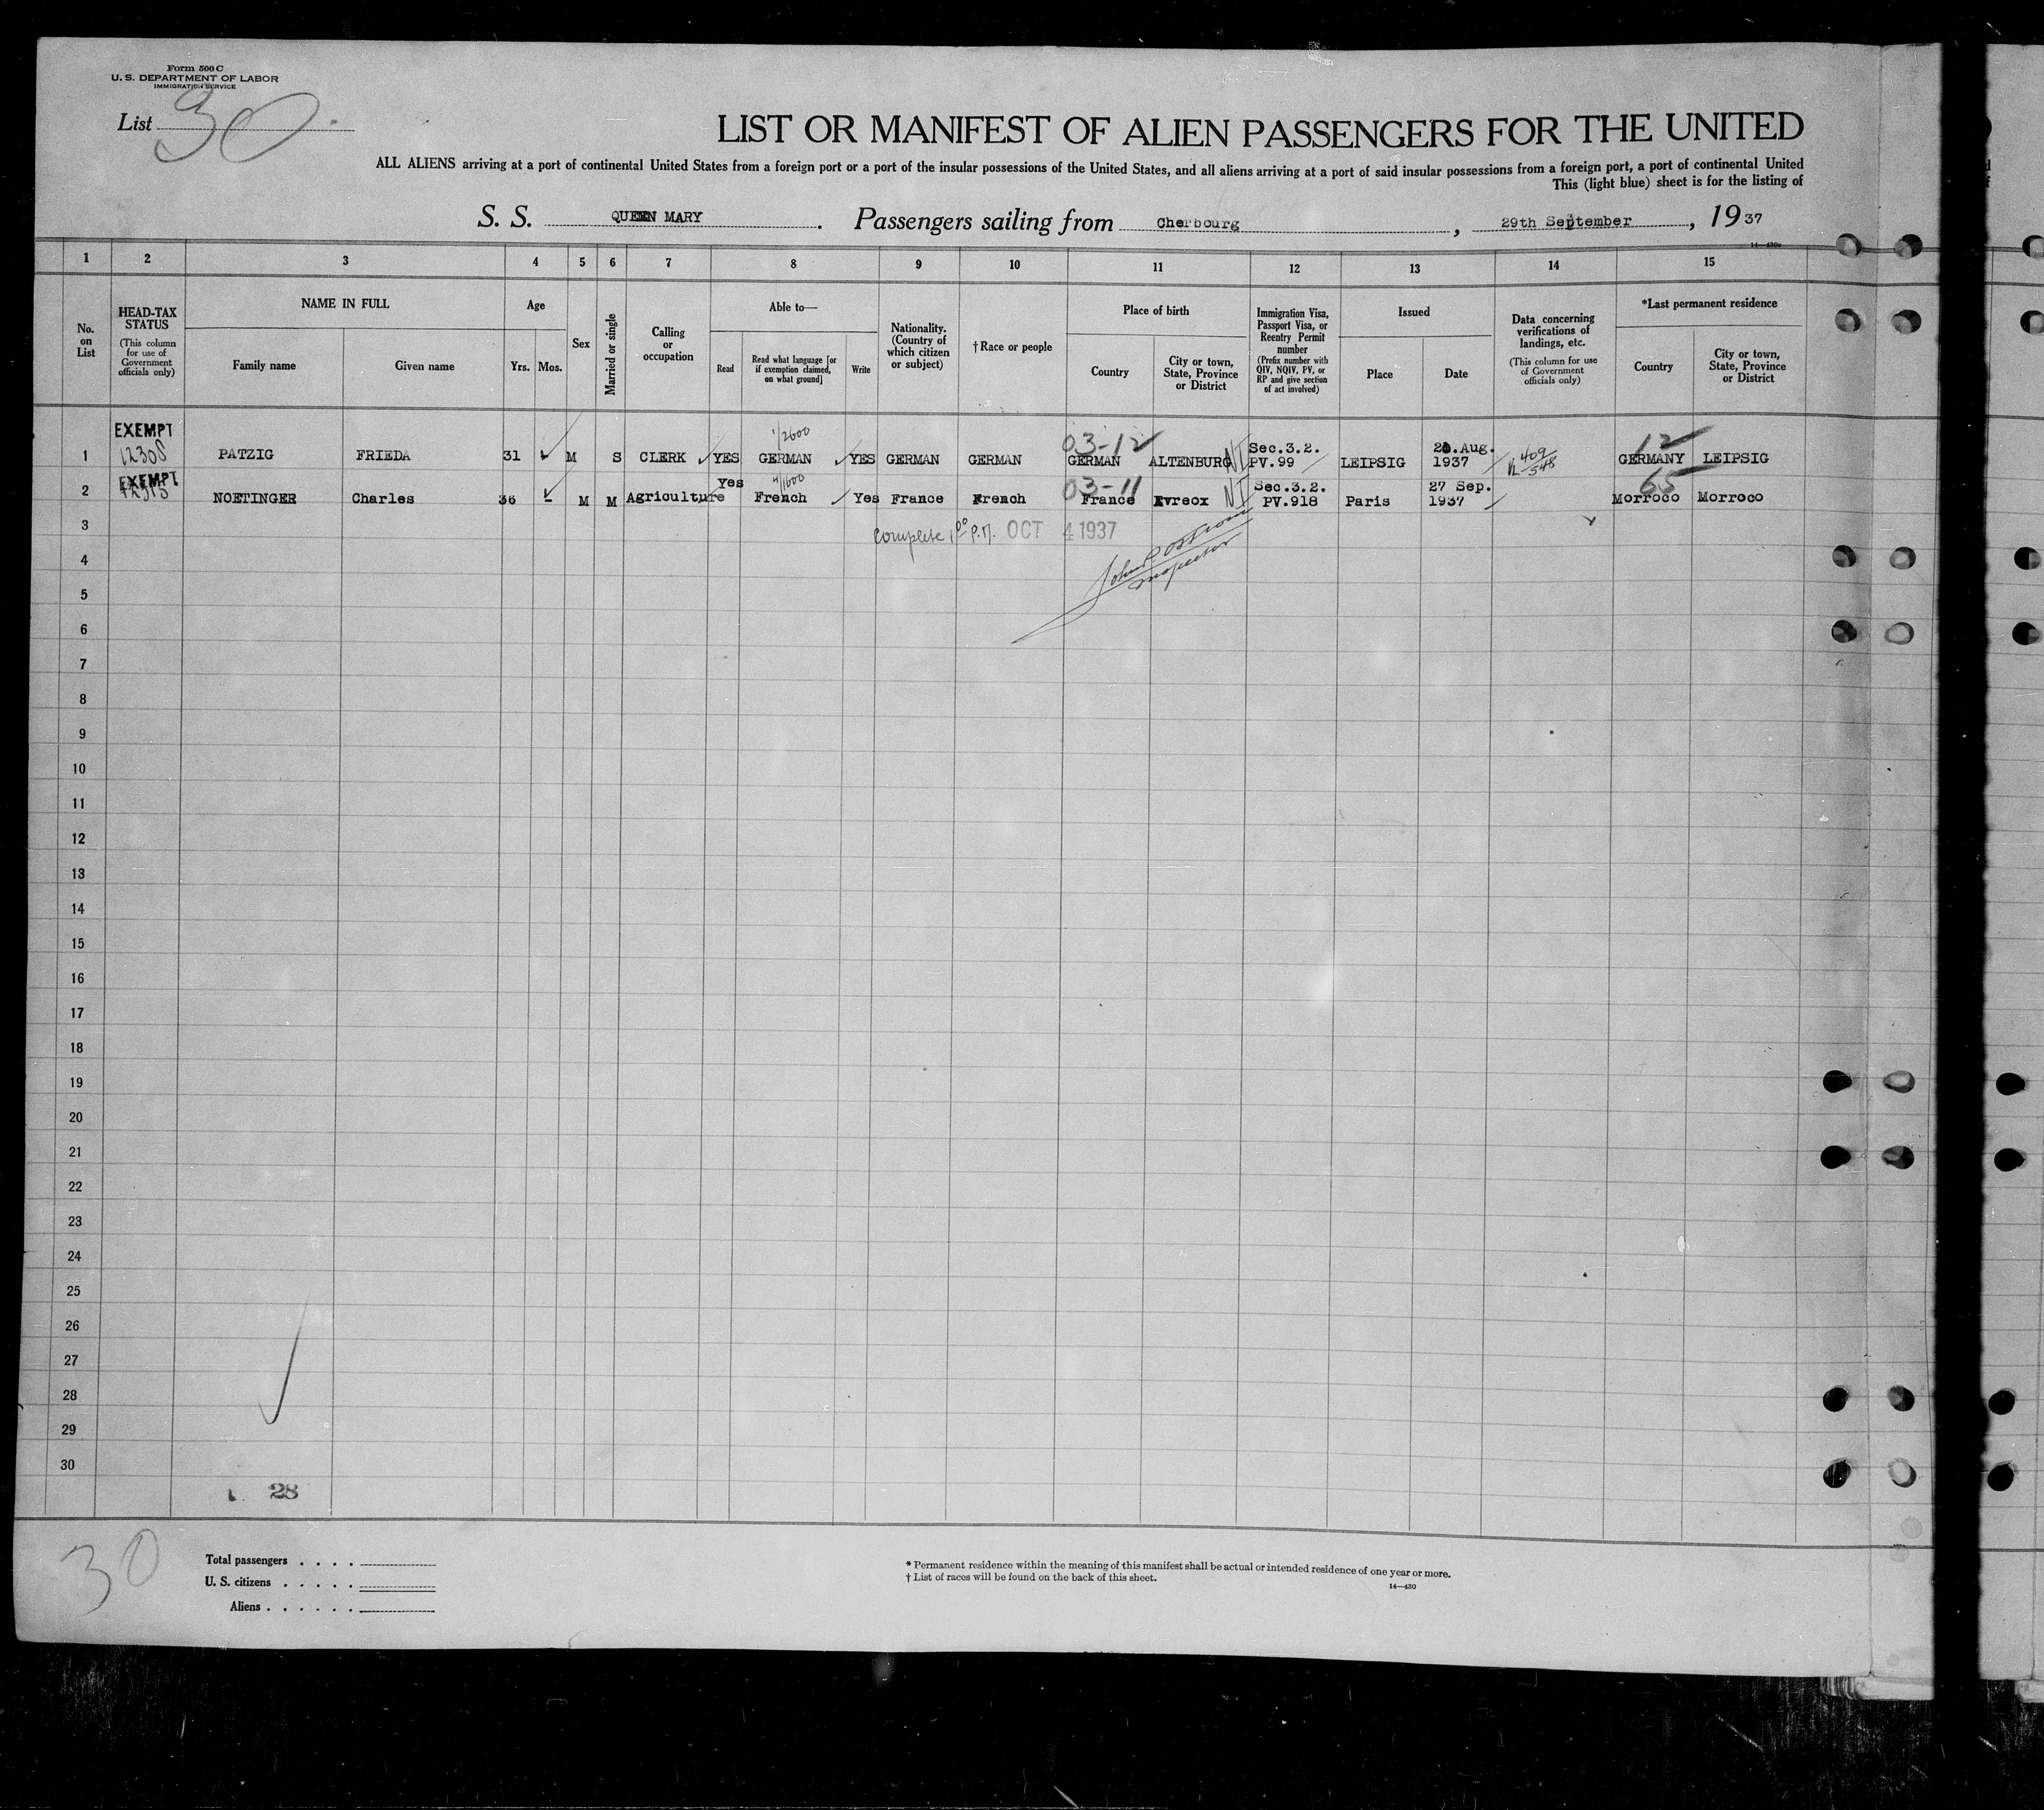 Form 500 C
U. S. DEPARTMENT OF LABOR
IMMIGRATION SERVICE
List 30
LIST OR MANIFEST OF ALIEN PASSENGERS FOR THE UNITED
ALL ALIENS arriving at a port of continental United States from a foreign port or a port of the insular possessions of the United States, and all aliens arriving at a port of said insular possessions from a foreign port, a port of continental United
This (light blue) sheet is for the listing of
S. S. QUEEN MARY. Passengers sailing from Cherbourg, 29th September, 1937
14—430a
1 2 3 4 5 6 7 8 9 10 11 12 13 14 15
No. on List
HEAD-TAX STATUS
(This column for use of Government officials only)
NAME IN FULL
Family name
Given name
Age
Yrs.
Mos.
Sex
Married or single
Calling or occupation
Able to—
Read
Read what language [or if exemption claimed, on what ground]
Write
Nationality. (Country of which citizen or subject)
†Race or people
Place of birth
Country
City or town, State, Province or District
Immigration Visa, Passport Visa, or Reentry Permit number
(Prefix number with QIV, NQIV, PV, or RP and give section of act involved)
Issued
Place
Date
Data concerning verifications of landings, etc.
(This column for use of Government officials only)
*Last permanent residence
Country
City or town, State, Province or District
EXEMPT 1/2600 03-12 Sec.3.2. Aug. 409 12
1 12308 PATZIG FRIEDA 31 M S CLERK YES GERMAN YES GERMAN GERMAN GERMAN ALTENBURG NI PV.99 LEIPSIG 1937 548 GERMANY LEIPSIG
EXEMPT Yes 03-11 Sec.3.2. 27 Sep. 65
2 NOETINGER Charles 36 - M M Agriculture French Yes France French France Evreox NI PV.918 Paris 1937 Morroco Morroco
3 Complete 1 00 P.M. OCT 4 1937
4
Inspector
5
6
7
8
9
10
11
12
13
14
15
16
17
18
19
20
21
22
23
24
25
26
27
28
29
30
28
30
Total passengers . . . .
U. S. citizens . . . . .
Aliens . . . . . .
* Permanent residence within the meaning of this manifest shall be actual or intended residence of one year or more.
† List of races will be found on the back of this sheet.
14—430